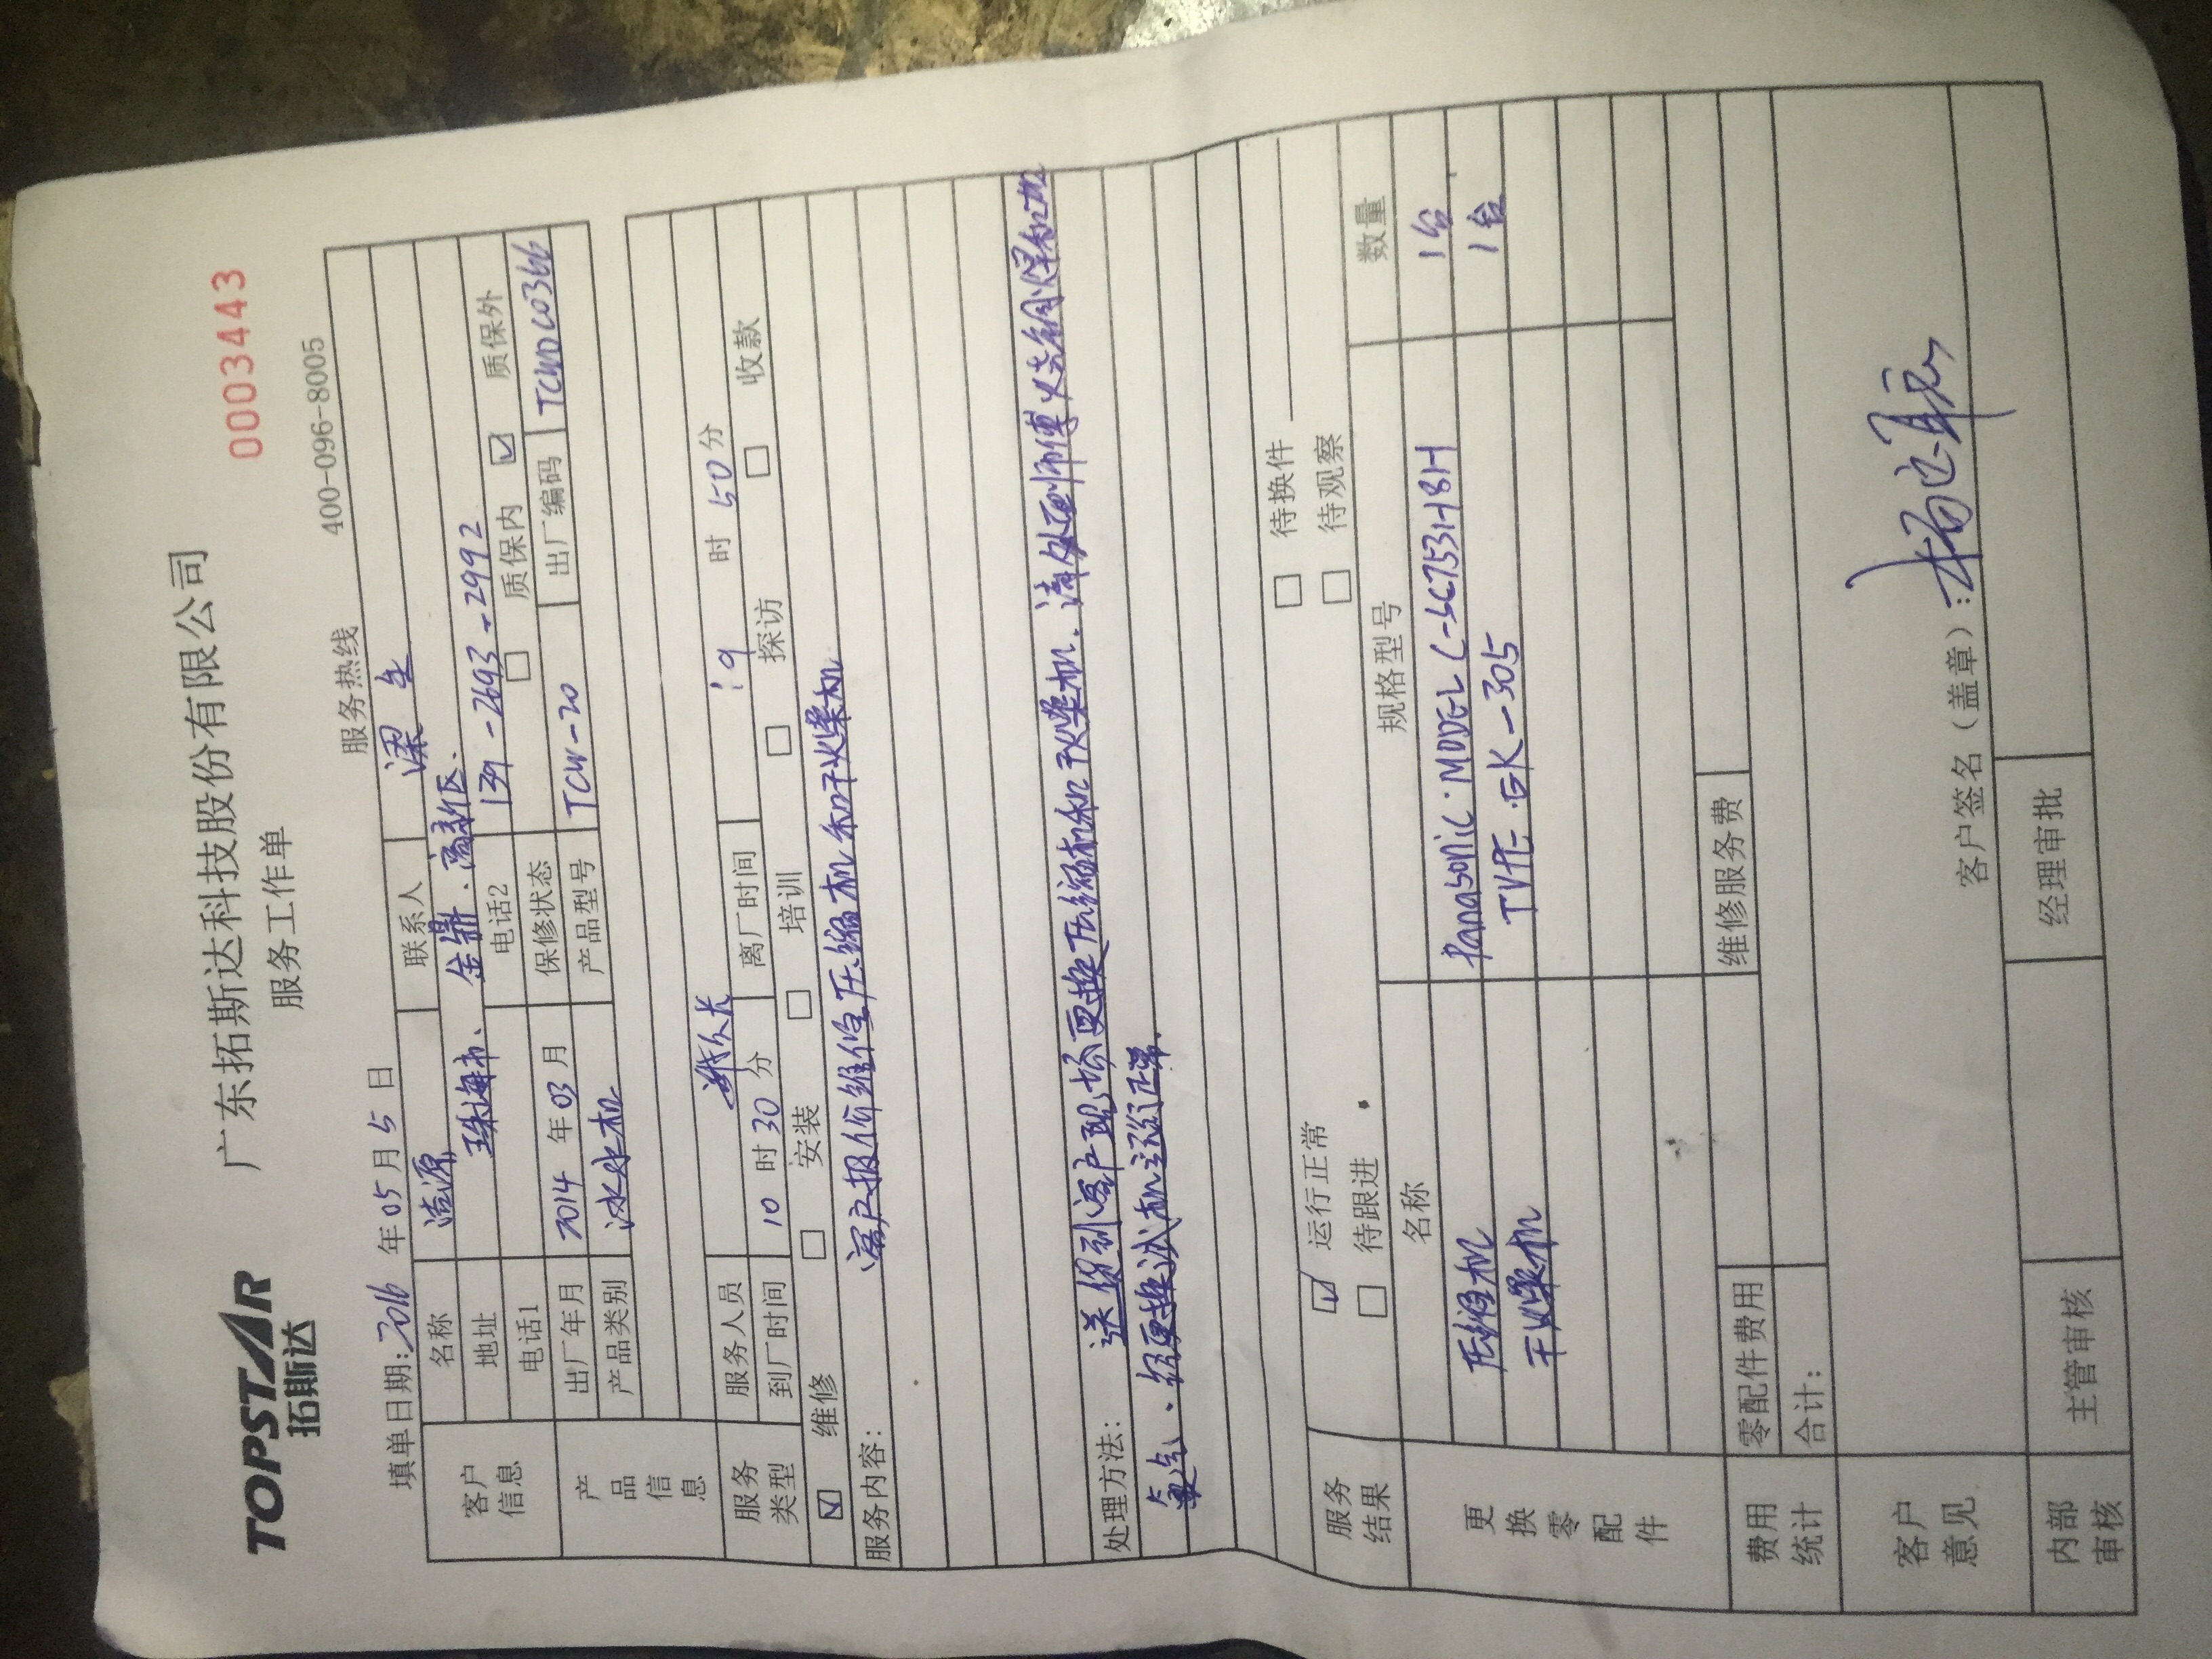 TOPSTAR
拓斯达
广东拓斯达科技股份有限公司
0003443
服务工作单
填单日期:2016年05月5日
服务热线 400-096-8005
客户信息
名称 浩源 联系人 梁生
地址 珠海市、金鼎、高新区.
电话1 电话2 1391-2693-2992
产品信息
出厂年月 2014年03月 保修状态 □ 质保内 ☑ 质保外
产品类别 冰水机 产品型号 TCW-20 出厂编码
服务类型
服务人员
到厂时间 10时30分 离厂时间 19时50分
☑ 维修 □ 安装 □ 培训 □ 探访 □ 收款
服务内容: 客户报价维修压缩机和干燥机
处理方法: 送货到客户现场更换压缩机和干燥机.请处理师傅火焰铜焊和加
氟气、经更换试机运行正常.
服务结果
☑ 运行正常 □ 待换件
□ 待跟进 □ 待观察
更换零配件
名称 规格型号 数量
压缩机 Panasonic MODEL C-SC753H8H 1台
干燥机 TYPE EK-305 1台
费用统计
零配件费用 维修服务费
合计:
客户意见
客户签名(盖章):
内部审核
主管审核 经理审批